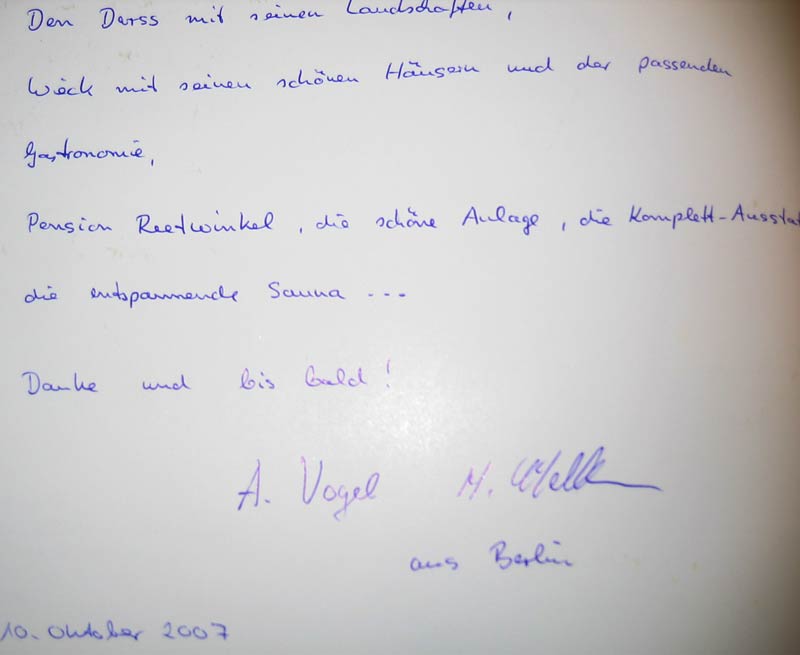 Den Darss mit seinen Landschaften,
Wieck mit seinen schönen Häusern und der passenden
Gastronomie,
Pension Reetwinkel, die schöne Anlage, die Komplett-Ausstat
die entspannende Sauna ...
Danke und bis bald!
A. Vogel M.
aus Berlin
10. Oktober 2007